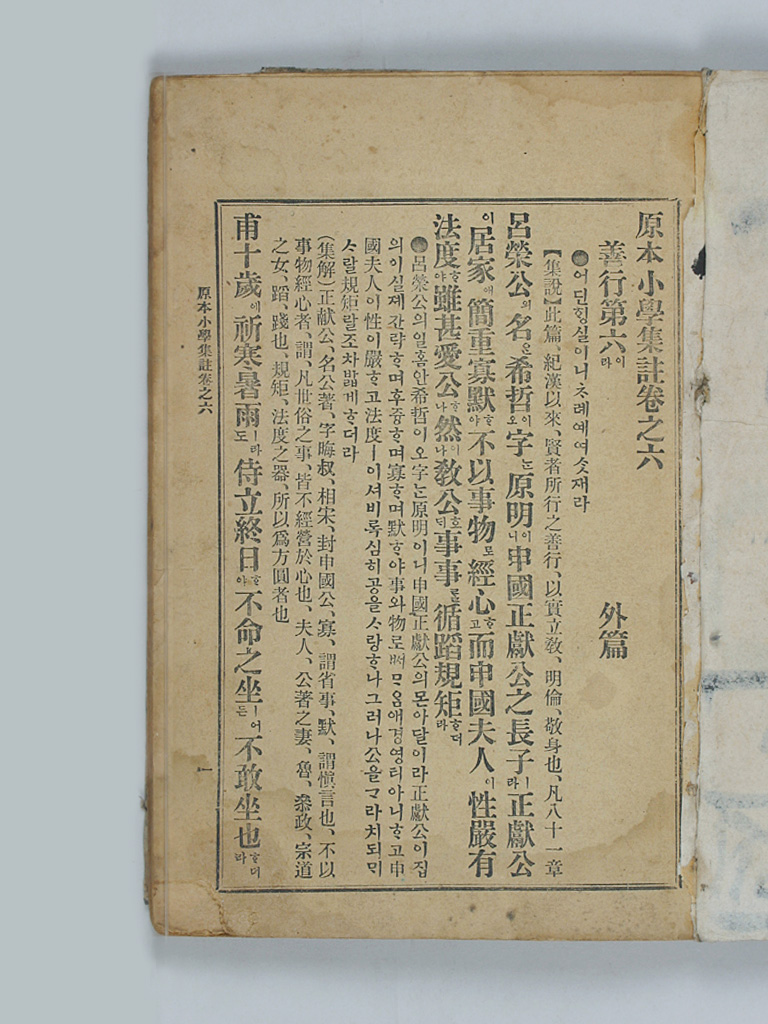 原本小學集註卷之六
善行第六이라 外篇
●어딘힝실이니ᄎ례예여슷재라
【集說】此篇、紀漢以來、賢者所行之善行、以實立敎、明倫、敬身也、凡八十一章
呂榮公의名은希哲이오字ᄂᆞᆫ原明이니申國正獻公之長子ㅣ라正獻公
이居家애簡重寡默ᄒᆞ야不以事物로經心ᄒᆞ고而申國夫人이性嚴有
法度ᄒᆞ야雖甚愛公ᄒᆞ나然이나敎公호ᄃᆡ事事를循蹈規矩ᄒᆞ더라
●呂榮公의일홈안希哲이오字ᄂᆞᆫ原明이니申國正獻公의몯아달이라正獻公이집
의이실졔간략ᄒᆞ며후중ᄒᆞ며寡ᄒᆞ며默ᄒᆞ야事와物로ᄡᅥᄆᆞ옴애경영티아니ᄒᆞ고申
國夫人이性이嚴ᄒᆞ고法度ㅣ이셔비록심히공을ᄉᆞ랑ᄒᆞ나그러나公을ᄀᆞᄅᆞ치되믹
ᄉᆞ랄規矩랄조차밟게ᄒᆞ더라
(集解)正献公、名公著、字晦叔、相宋、封申國公、寡、謂省事、默、謂愼言也、不以
事物經心者、謂、凡世俗之事、皆不經營於心也、夫人、公著之妻、魯、叅政、宗道
之女、蹈、踐也、規矩、法度之器、所以爲方圓者也
甫十歲에祈寒暑雨ㅣ라도侍立終日ᄒᆞ야不命之坐ㅣ어든不敢坐也ᄒᆞ더라
原本小學集註卷之六
一